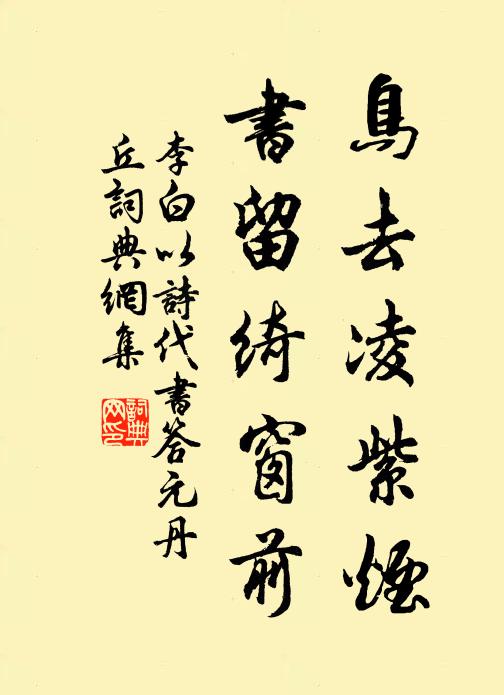 鳥去凌紫煙
書留綺窗前
李白以詩代書答元丹
丘詞典網集
詞典
网印